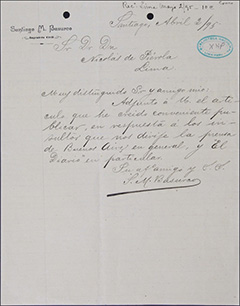 Santiago M. Basurco
Santiago, Abril 2/95.
Sr. Dr. Dn.
Nicolas de Piérola
Lima.
Muy distinguido Sr y amigo mio:
Adjunto á Ud el artí-
culo que he creido conveniente pu-
blicar, en respuesta á los in-
sultos que nos dirije la prensa
de Buenos Aires en general, y El
Diario en particular.
Su afmo amigo y S. S.